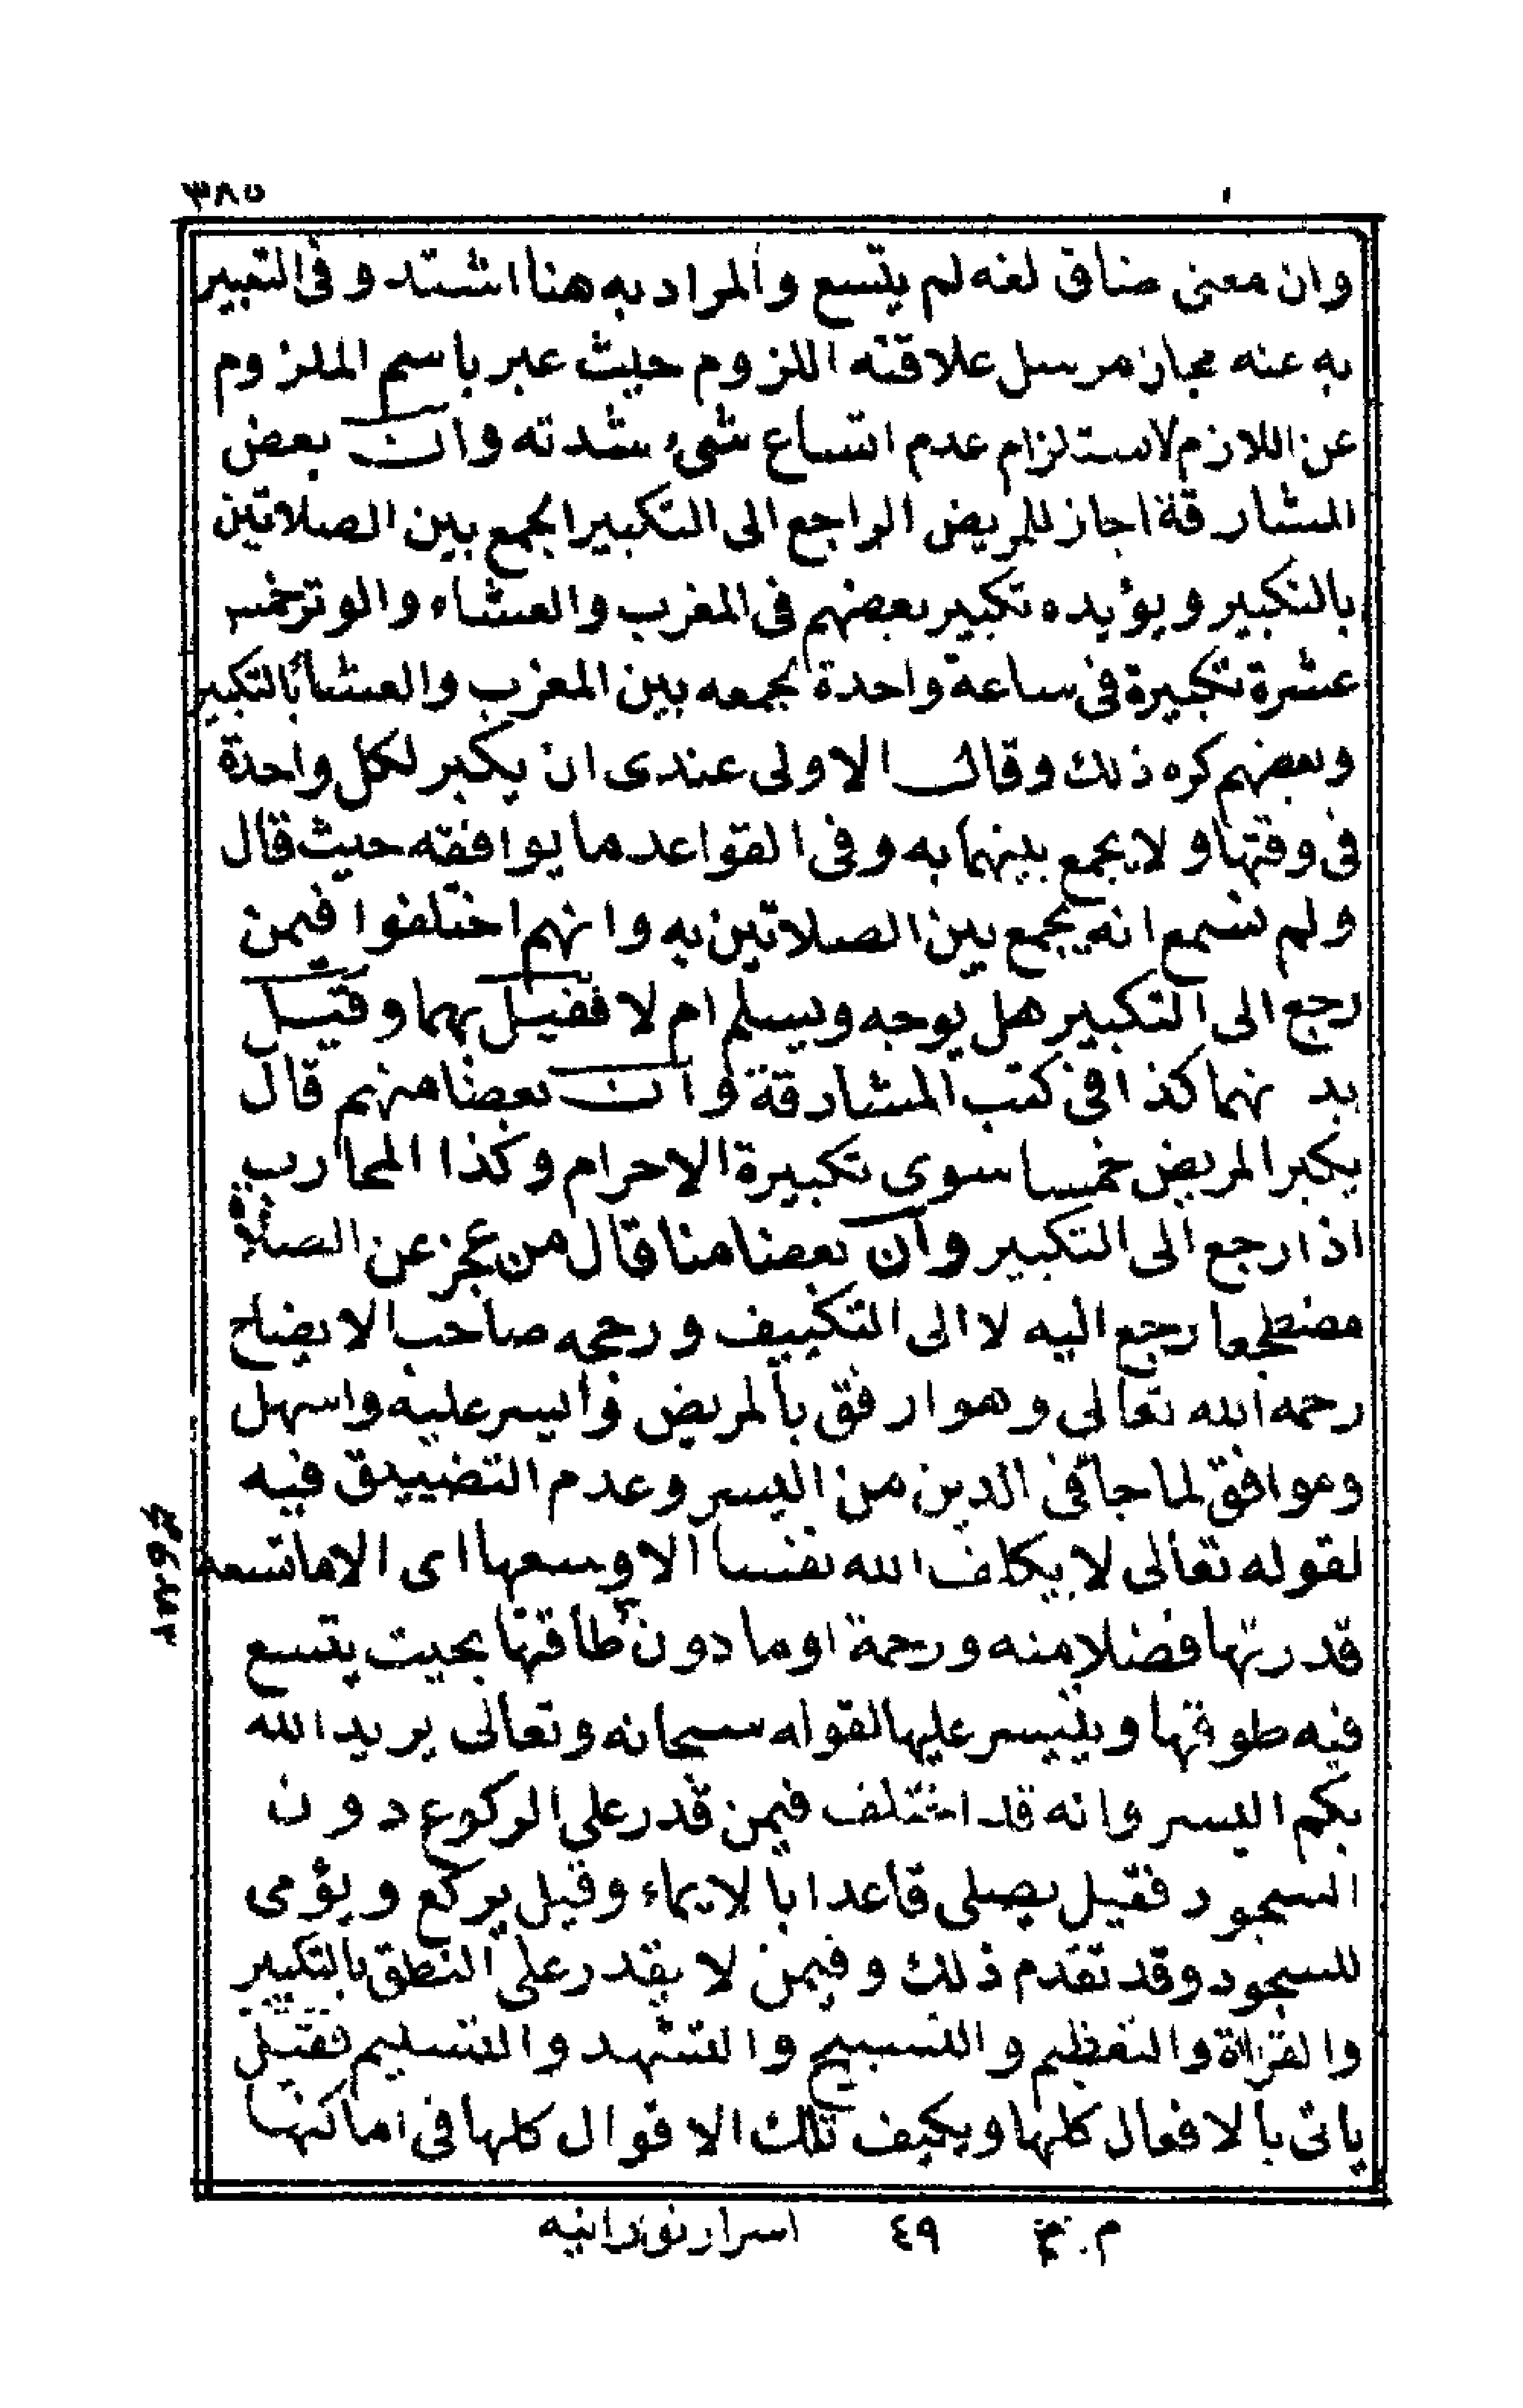 ٣٨٥
وان معنى ضاق لغه لم يتسع والمراد به هنا اشتد و فى التعبير
به عنه مجاز مرسل علاقته اللزوم حيث عبر باسم الملزوم
عن اللازم لاستلزام عدم اتساع شىء شدته وان بعض
المشارقة اجاز للمريض الراجع الى التكبير الجمع بين الصلاتين
بالتكبير ويؤيده تكبير بعضهم فى المغرب والعشاء والوتر خمس
عشرة تكبيرة فى ساعة واحدة بجمعه بين المغرب والعشا بالتكبير
وبعضهم كره ذلك وقال الاولى عندى ان يكبر لكل واحدة
فى وقتها ولا يجمع بينهما به وفى القواعد ما يوافقه حيث قال
ولم نسمع انه يجمع بين الصلاتين به وانهم اختلفوا فيمن
رجع الى التكبير هل يوجه ويسلم ام لا فقيل بهما وقيل
بد نهما كذا فى كتب المشارقة وان بعضا منهم قال
يكبر المريض خمسا سوى تكبيرة الاحرام وكذا المحارب
اذا رجع الى التكبير وان بعضا منا قال من عجز عن الصلاة
مضطجعا رجع اليه لا الى التكييف ورجحه صاحب الايضاح
رحمه الله تعالى وهو ارفق بالمريض وايسر عليه واسهل
وموافق لما جا فى الدين من اليسر وعدم التضييق فيه
لقوله تعالى لا يكلف الله نفسا الا وسعها اى الا ما تسعه
قدرتها فضلا منه ورحمة او ما دون طاقتها بحيت يتسع
فيه طوقها ويتيسر عليها لقوله سبحانه وتعالى يريد الله
بكم اليسر وانه قد اختلف فيمن قدر على الركوع دون
السجود فقيل يصلى قاعدا بالايماء وقيل يركع ويؤمى
للسجود وقد تقدم ذلك وفيمن لا يقدر على النطق بالتكبير
والقراة والتعظيم والتسبيح والتشهد والتسليم فقيل
ياتى بالافعال كلها ويكيف تلك الاقوال كلها فى اماكنها
م. ٤٩ اسرار نورانيه